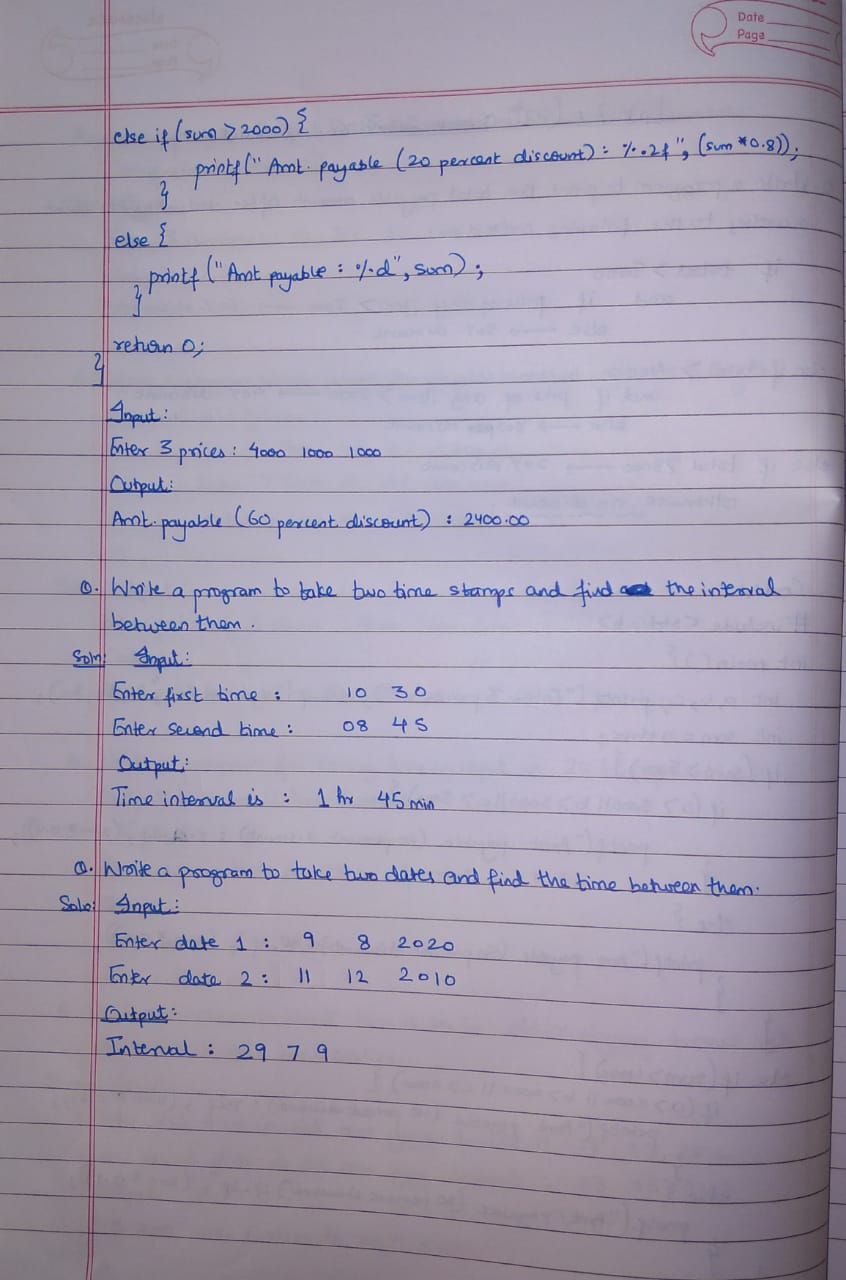 Date
Page
else if (sum > 2000) {
printf(" Amt. payable (20 percent discount) : %.2f", (sum *0.8));
}
else {
printf ("Amt payable : %d", sum);
}
return 0;
}
Input:
Enter 3 prices : 4000 1000 1000
Output:
Amt. payable (60 percent discount) : 2400.00
Q. Write a program to take two time stamps and find the interval
between them.
Soln: Input:
Enter first time : 10 30
Enter second time : 08 45
Output:
Time interval is : 1 hr 45 min
Q. Write a program to take two dates and find the time between them.
Soln: Input:
Enter date 1 : 9 8 2020
Enter date 2 : 11 12 2010
Output:
Interval : 29 7 9